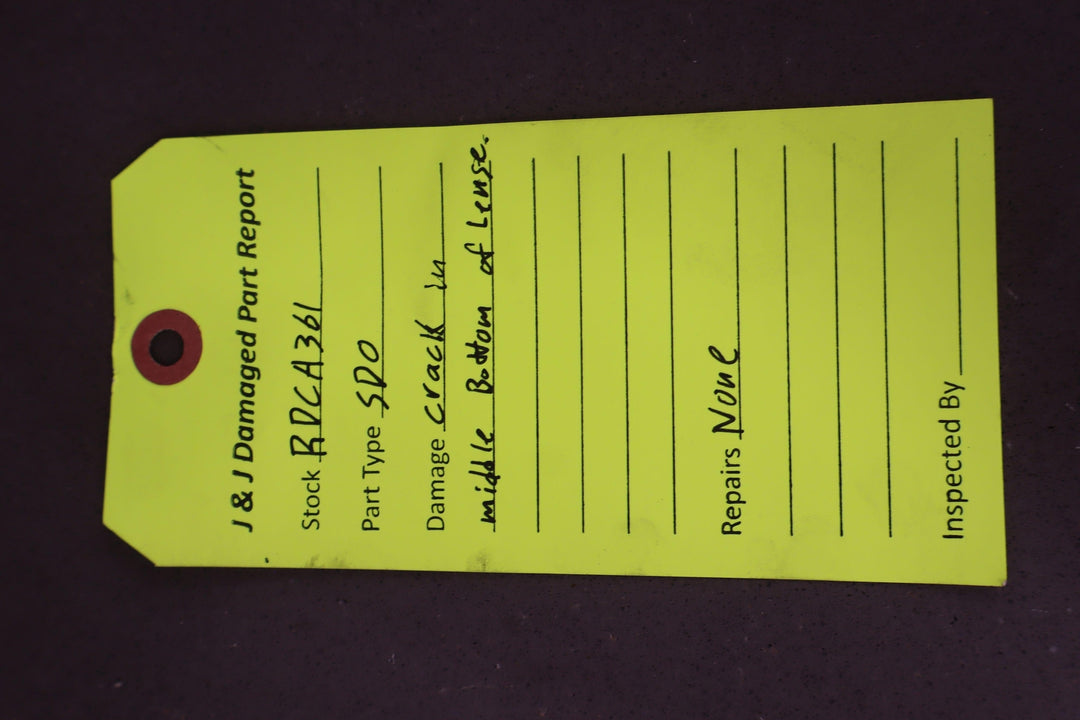 J & J Damaged Part Report
Stock RDCA361
Part Type SDO
Damage crack in
middle Bottom of Lense.
Repairs None
Inspected By